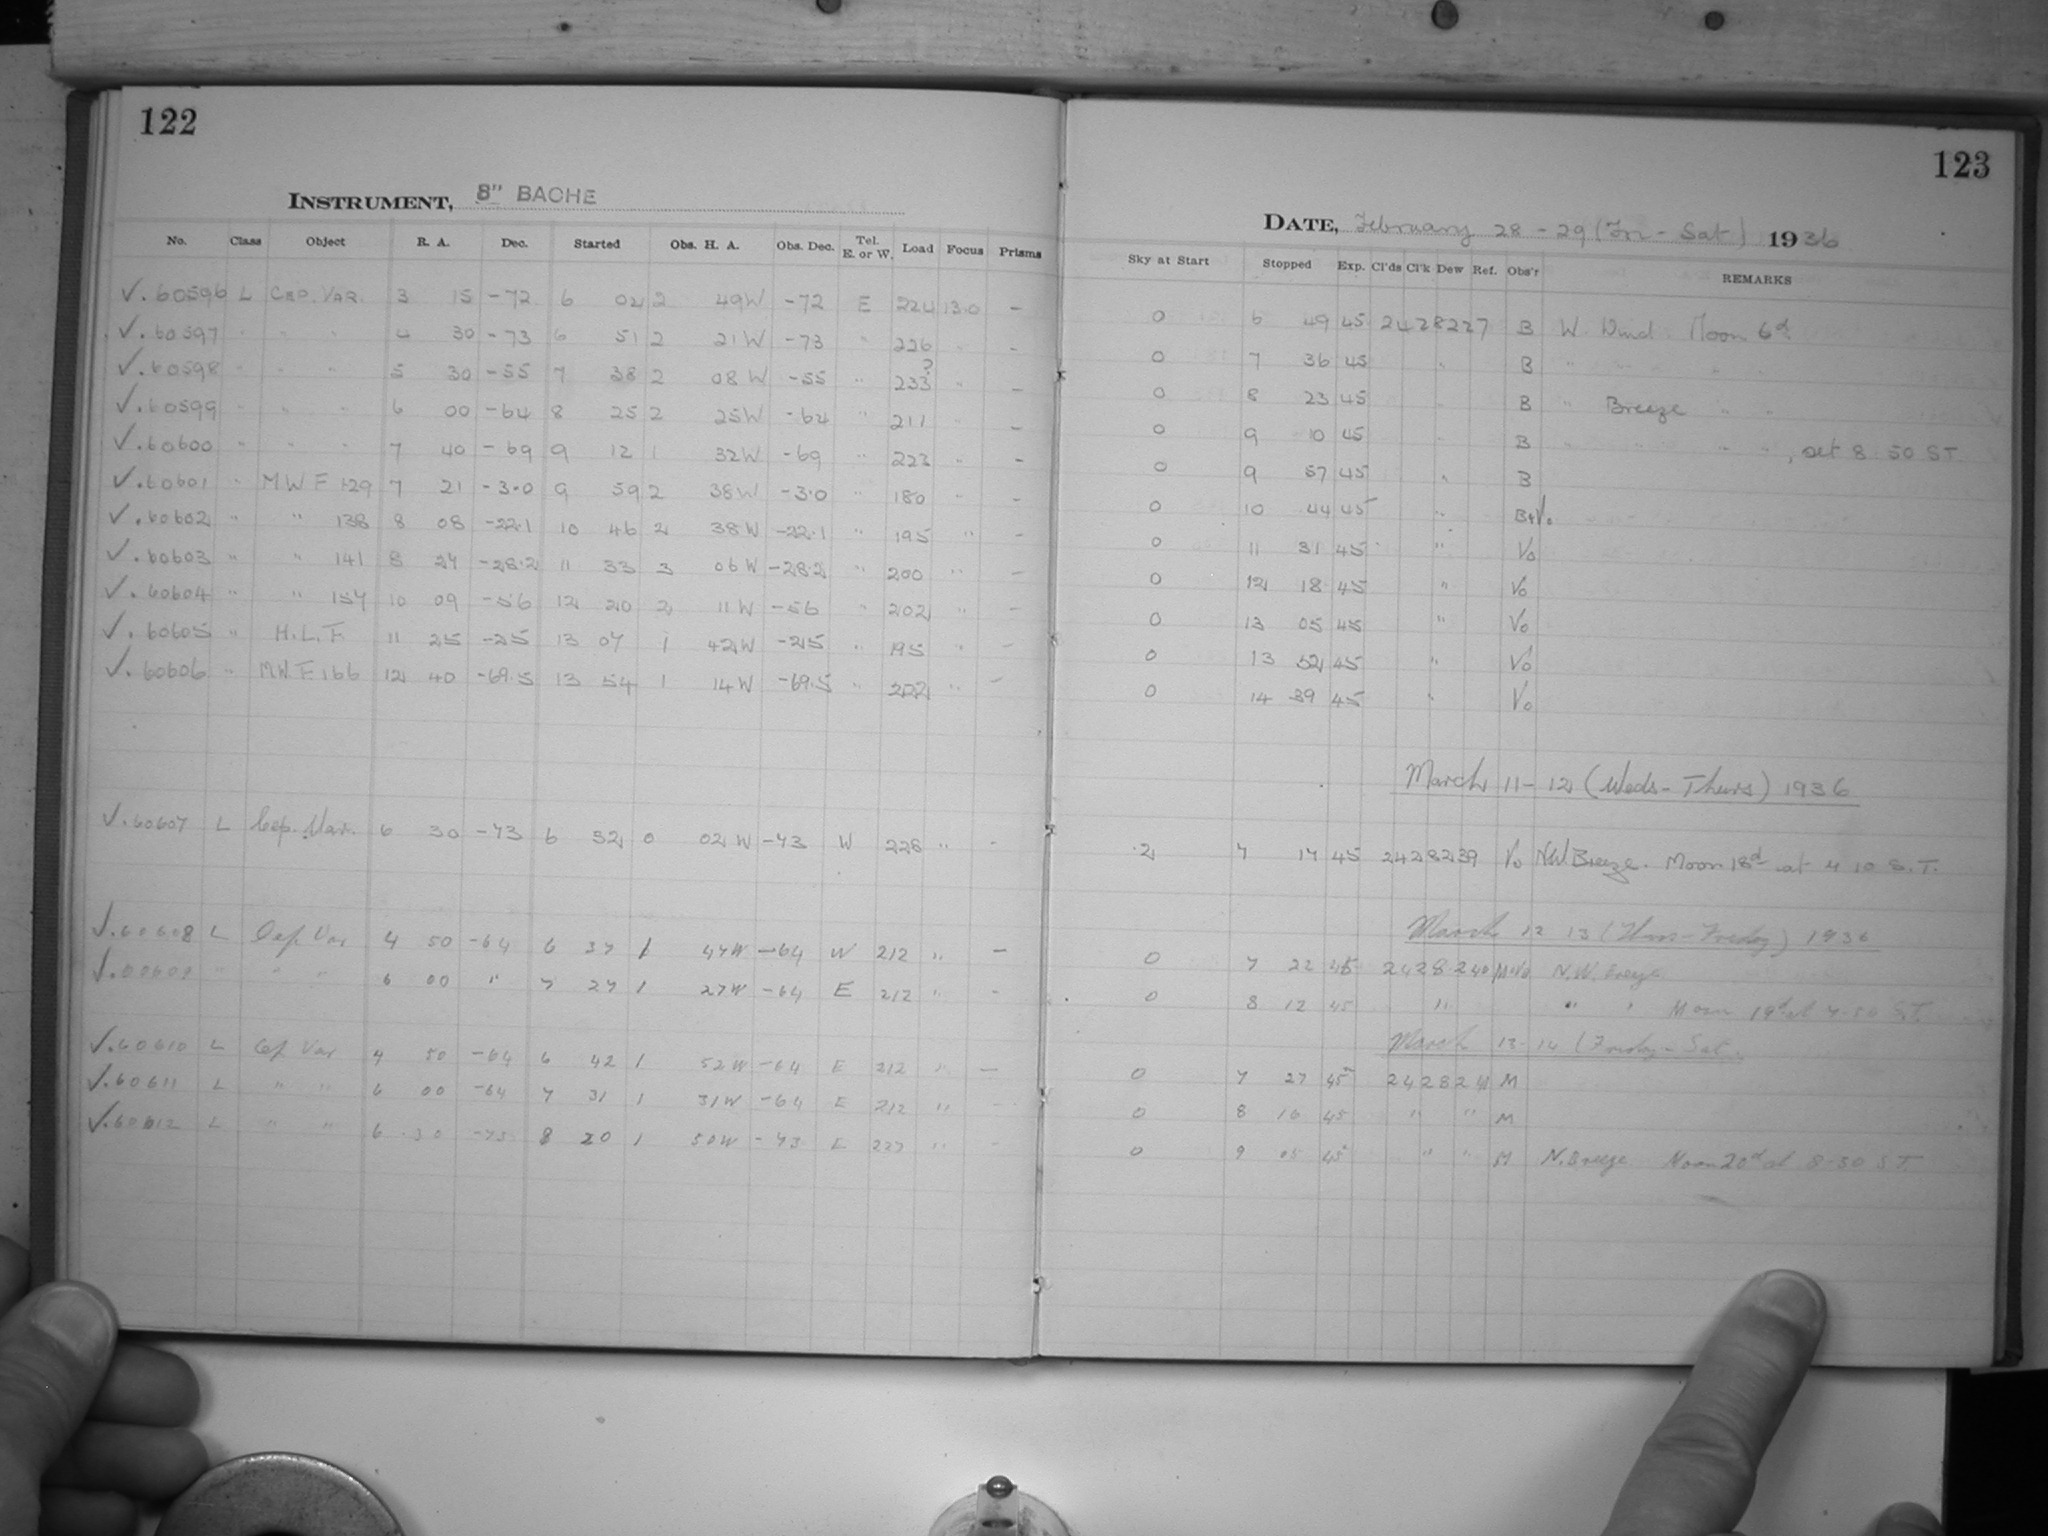 122
INSTRUMENT, 8" BACHE
No. Class Object R. A. Dec. Started Obs. H. A. Obs. Dec. Tel. E. or W. Load Focus Prisms
✓. 60596 L CEP. VAR. 3 15 -72 6 04 2 49W -72 E 224 13.0 -
✓. 60597 " " " 4 30 -73 6 51 2 21W -73 " 226 " -
✓. 60598 " " " 5 30 -55 7 38 2 08W -55 " 233? " -
✓. 60599 " " " 6 00 -64 8 25 2 25W -64 " 211 " -
✓. 60600 " " " 7 40 -69 9 12 1 32W -69 " 223 " -
✓. 60601 " MWF 129 7 21 -3.0 9 59 2 38W -3.0 " 180 " -
✓. 60602 " " 138 8 08 -22.1 10 46 2 38W -22.1 " 195 " -
✓. 60603 " " 141 8 27 -28.2 11 33 3 06W -28.2 " 200 " -
✓. 60604 " " 157 10 09 -56 12 20 2 11W -56 " 202 " -
✓. 60605 " H.L.F. 11 25 -25 13 07 1 42W -25 " 195 " -
✓. 60606 " MWF 166 12 40 -69.5 13 54 1 14W -69.5 " 222 " -
✓. 60607 L Cep. Var. 6 30 -73 6 32 0 02W -73 W 228 " -
✓. 60608 L Cep Var 4 50 -64 6 37 1 47W -64 W 212 " -
✓. 60609 " " " 6 00 " 7 27 1 27W -64 E 212 " -
✓. 60610 L Cep Var 4 50 -64 6 42 1 52W -64 E 212 " -
✓. 60611 L " " 6 00 -64 7 31 1 31W -64 E 212 " -
✓. 60612 L " " 6 30 -73 8 20 1 50W -73 E 227 " -
123
DATE, February 28 - 29 (Fri - Sat) 1936
Sky at Start Stopped Exp. Cl'ds Cl'k Dew Ref. Obs'r REMARKS
0 6 49 45 2428227 B W Wind. Moon 6d
0 7 36 45 " B " " " "
0 8 23 45 " B " Breeze " "
0 9 10 45 " B " " " ", set 8 50 ST
0 9 57 45 " B
0 10 44 45 " B+Vo
0 11 31 45 " Vo
0 12 18 45 " Vo
0 13 05 45 " Vo
0 13 52 45 " Vo
0 14 39 45 " Vo
March 11 - 12 (Weds - Thurs) 1936
2 7 17 45 2428239 Vo NW Breeze. Moon 18d at 4 10 S.T.
March 12 13 (Thurs - Friday) 1936
0 7 22 45 2428240 M+Vo N.W. Breeze
0 8 12 45 " " " Moon 19d at 7-50 S.T.
March 13-14 (Friday - Sat.
0 7 27 45 2428241 M
0 8 16 45 " " M
0 9 05 45 " " M N. Breeze Moon 20d at 8-30 S.T.